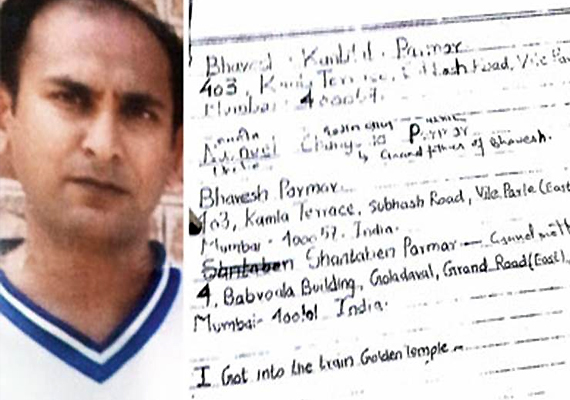 Bhavesh. Kantilal. Parmar
403, Kamla Terrace, Subhash Road, Vile Pa
Mumbai. 400057.
Parmar
Grand father of Bhavesh.
Bhavesh Parmar.
403, Kamla Terrace, Subhash Road, Vile Parle (East
Mumbai- 400057. India.
Shantaben Shantaben Parmar — Grand moth
4, Babvoola Building, Goladaval, Grand Road (East),
Mumbai- India.
I Got into the train Golden Temple